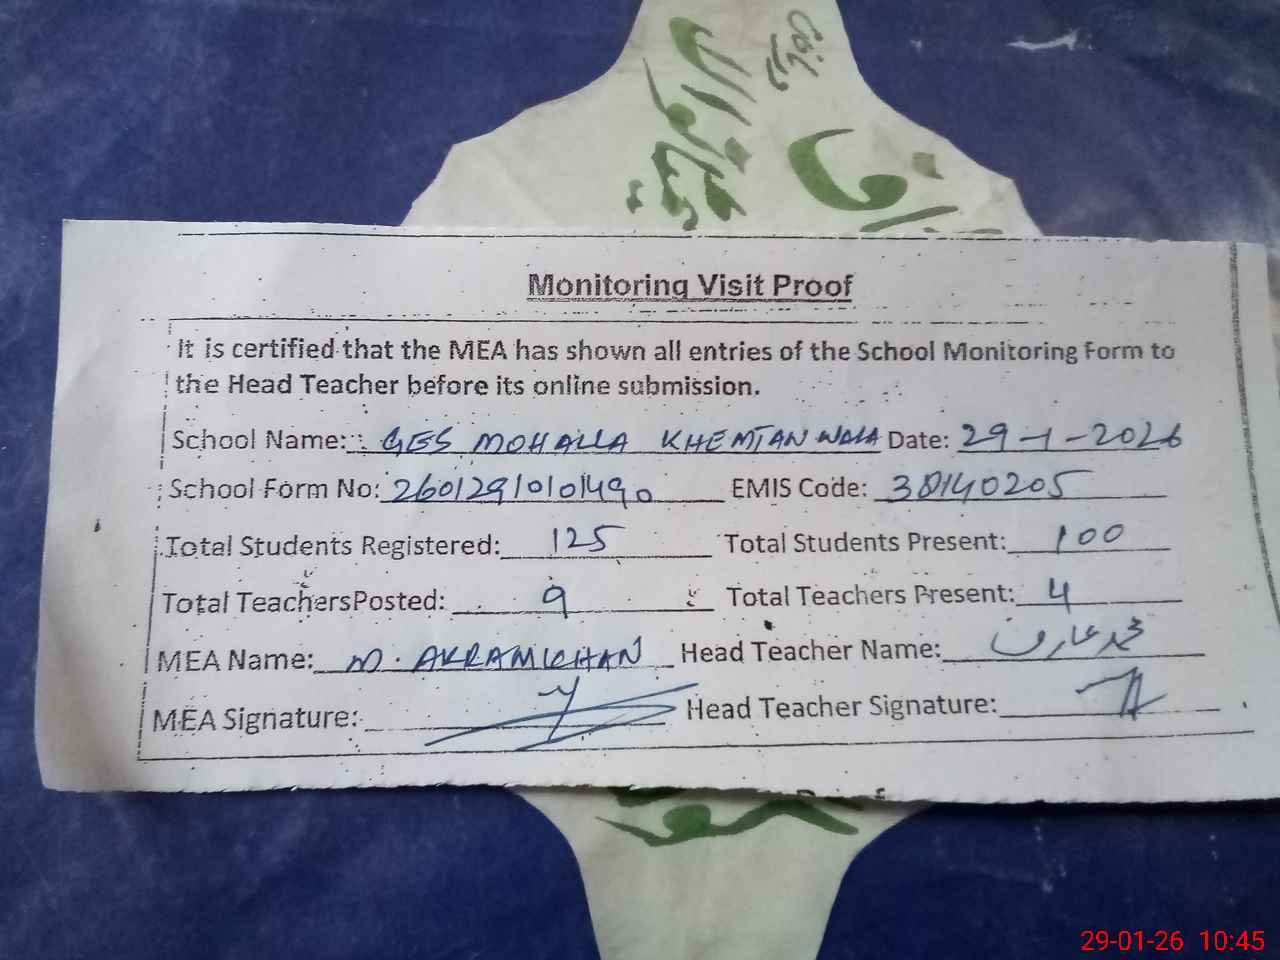 Monitoring Visit Proof
It is certified that the MEA has shown all entries of the School Monitoring Form to
the Head Teacher before its online submission.
School Name: GES MOHALLA KHEMTAN WALA Date: 29-1-2026
School Form No: 26012910101490 EMIS Code: 38140205
Total Students Registered: 125 Total Students Present: 100
Total Teachers Posted: 9 Total Teachers Present: 4
MEA Name: M. AKRAM KHAN Head Teacher Name:
MEA Signature: Head Teacher Signature:
29-01-26 10:45